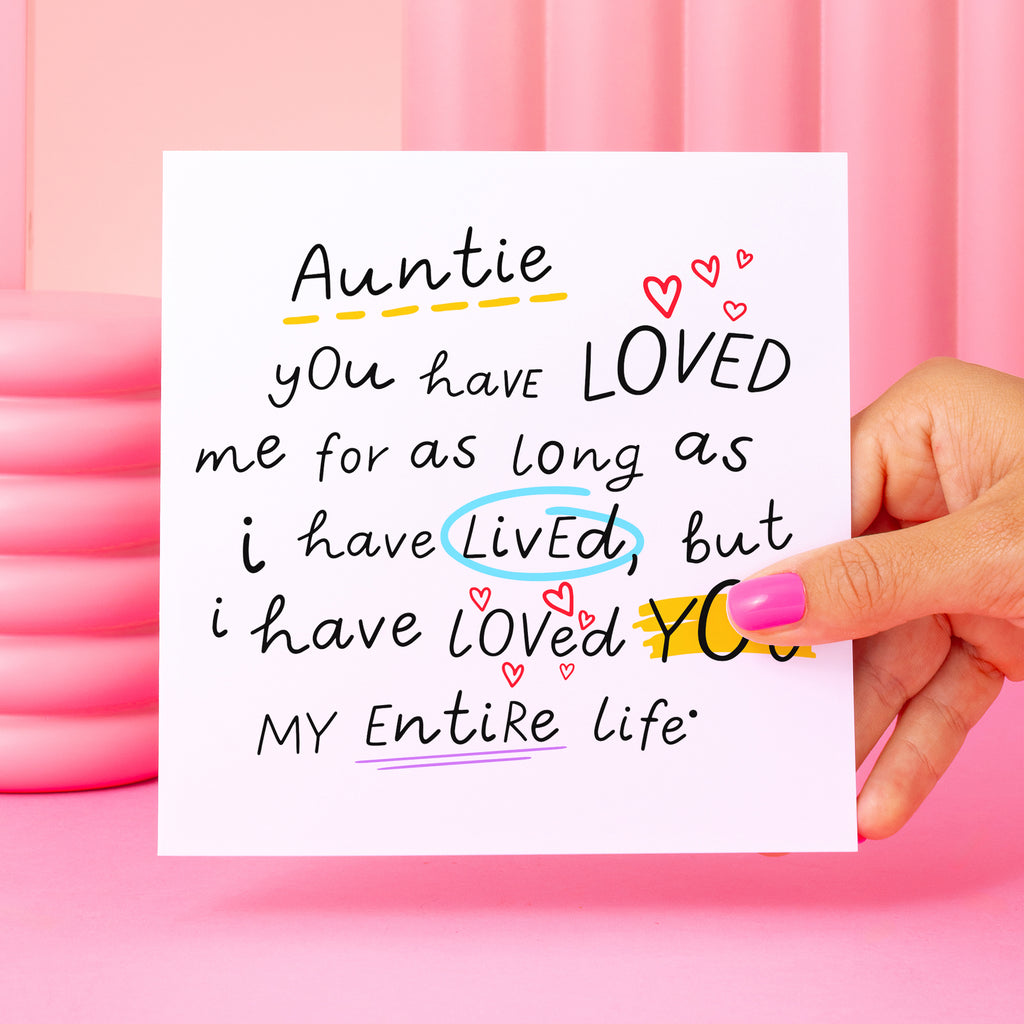 Auntie
you have LOVED
me for as long as
i have LivEd, but
i have lOVed YOU
MY EntiRe life.